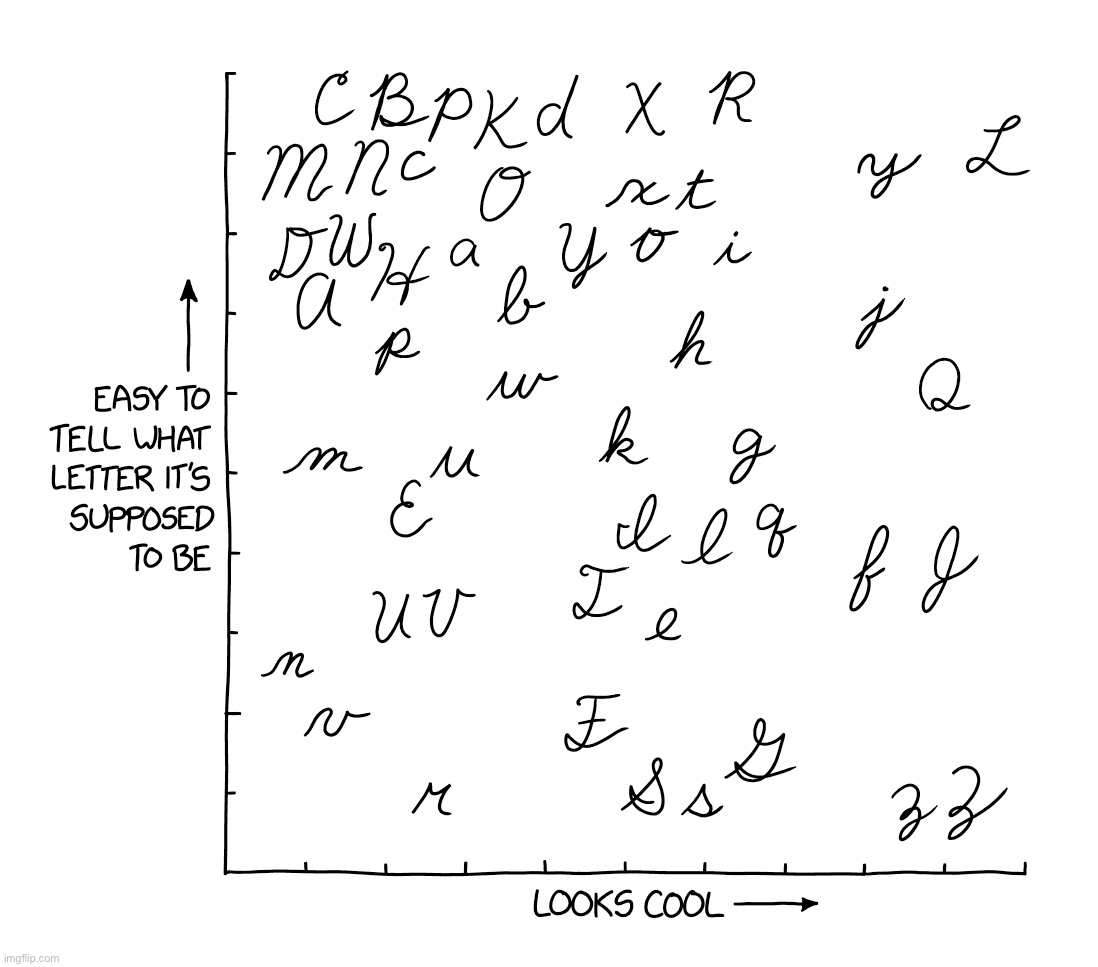 C B P K d X R
M N c O x t y L
D W H a Y o i
A b j
p h
w Q
EASY TO
TELL WHAT
LETTER IT'S
SUPPOSED
TO BE
m u k g
E I l q f J
U V T e
n
v F G
r S s z Z
LOOKS COOL
imgflip.com